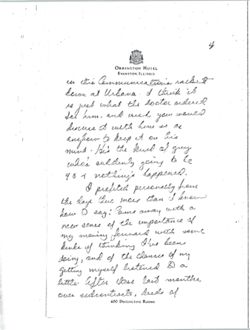 4
ORRINGTON HOTEL
EVANSTON, ILLINOIS
on this Communications racket
down at Urbana. I think it
is just what the doctor ordered
for him, and wish you would
discuss it with him or
anyhow to keep it on his
mind. He's the kind of guy
who's suddenly going to be
90 & nothing's happened.
I profited personally from
the days there more than I know
how to say: Came away with a
new sense of the importance of
my moving forward with some
kinds of thinking I've been
doing, and of the chance of my
getting myself listened to a
little. After those last months
over subcontracts, deeds of
600 DELIGHTFUL ROOMS